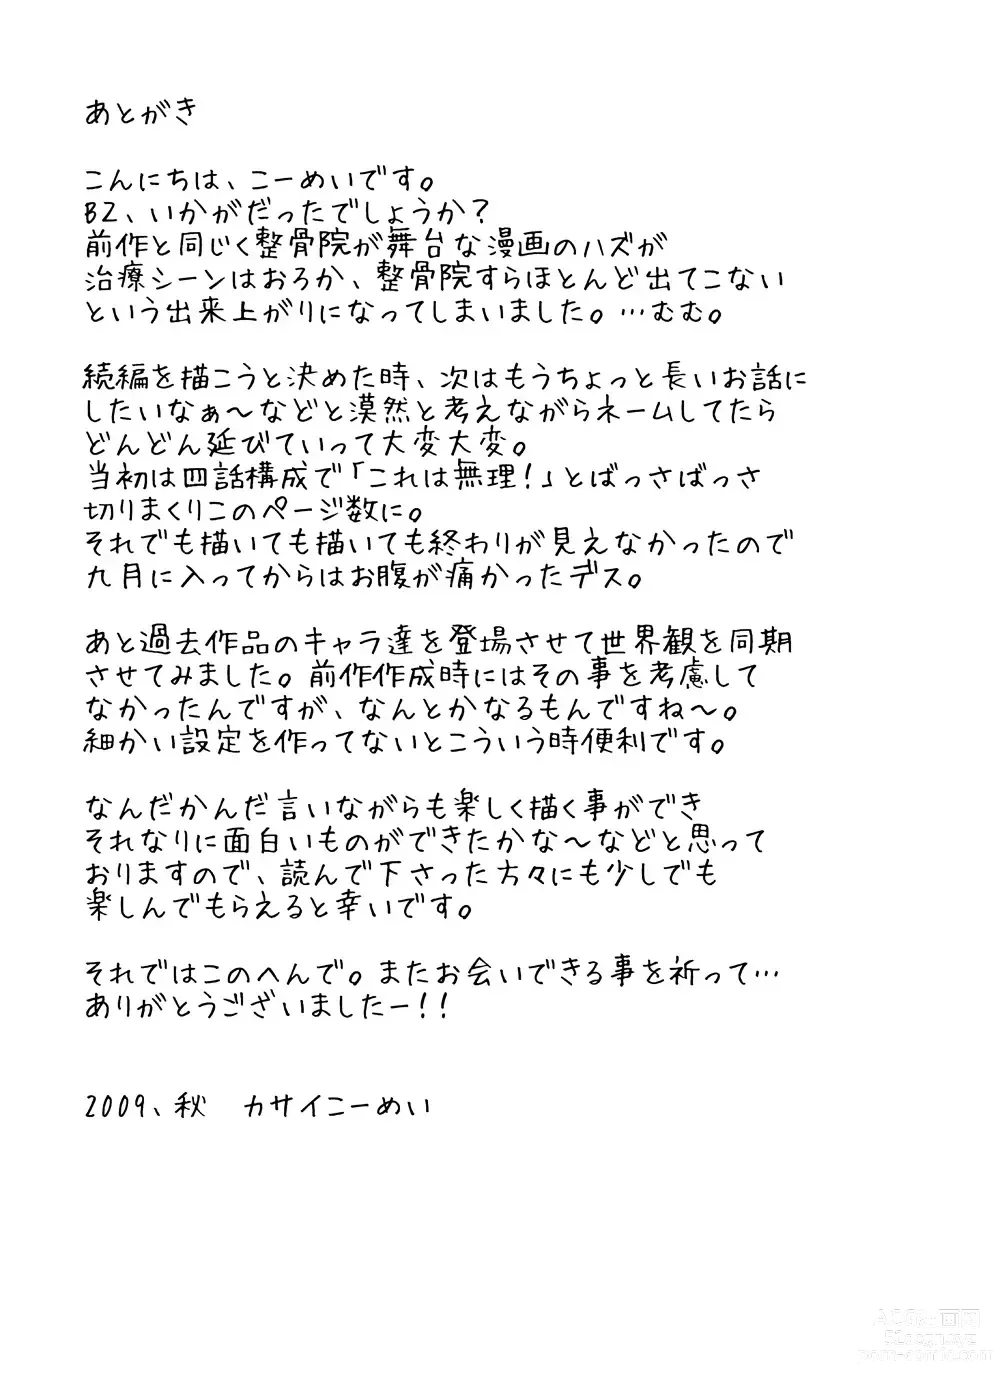 あとがき
こんにちは、こーめいです。
B2、いかがだったでしょうか？
前作と同じく整骨院が舞台な漫画のハズが
治療シーンはおろか、整骨院すらほとんど出てこない
という出来上がりになってしまいました。…むむ。
続編を描こうと決めた時、次はもうちょっと長いお話に
したいなぁ～などと漠然と考えながらネームしてたら
どんどん延びていって大変大変。
当初は四話構成で「これは無理！」とばっさばっさ
切りまくりこのページ数に。
それでも描いても描いても終わりが見えなかったので
九月に入ってからはお腹が痛かったデス。
あと過去作品のキャラ達を登場させて世界観を同期
させてみました。前作作成時にはその事を考慮して
なかったんですが、なんとかなるもんですね～。
細かい設定を作ってないとこういう時便利です。
なんだかんだ言いながらも楽しく描く事ができ
それなりに面白いものができたかな～などと思って
おりますので、読んで下さった方々にも少しでも
楽しんでもらえると幸いです。
それではこのへんで。またお会いできる事を祈って…
ありがとうございましたー！！
2009、秋　カサイこーめい
ACG和画网
52acgn.xyz
porn-comic.com